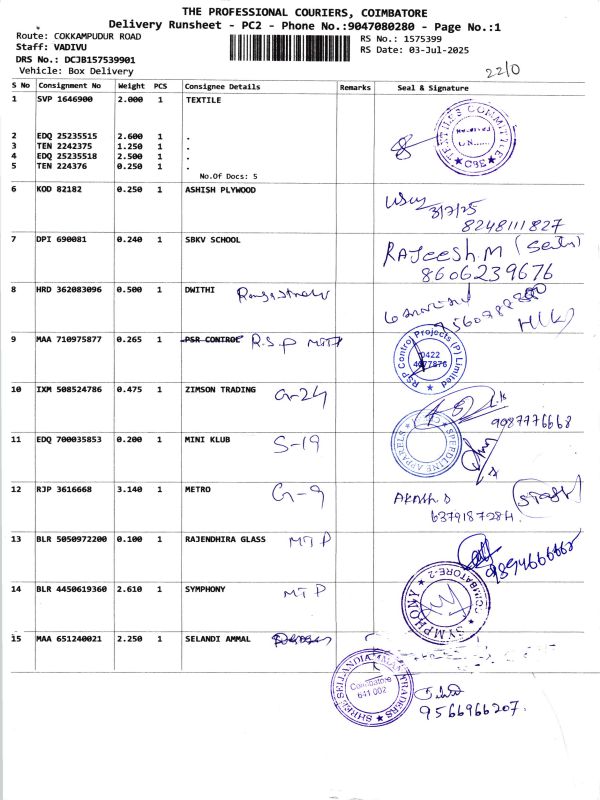 THE PROFESSIONAL COURIERS, COIMBATORE
Delivery Runsheet - PC2 - Phone No.:9047080280 - Page No.:1
Route: COKKAMPUDUR ROAD
RS No.: 1575399
Staff: VADIVU
RS Date: 03-Jul-2025
DRS No.: DCJB157539901
Vehicle: Box Delivery
22/0
S No Consignment No Weight PCS Consignee Details Remarks Seal & Signature
1 SVP 1646900 2.000 1 TEXTILE
2 EDQ 25235515 2.600 1 .
3 TEN 2242375 1.250 1 .
4 EDQ 25235518 2.500 1 .
5 TEN 224376 0.250 1 .
No.Of Docs: 5
TEXTILES COMMITTEE
CBE
6 KOD 82182 0.250 1 ASHISH PLYWOOD
3/7/25
8248111827
7 DPI 690081 0.240 1 SBKV SCHOOL
RAJeesh.M
8606239676
8 HRD 362083096 0.500 1 DWITHI
9 MAA 710975877 0.265 1 PSR CONTROL R.S.P MTP
RSP Control Projects (P) Limited
0422
4077876
10 IXM 508524786 0.475 1 ZIMSON TRADING G-24
9087776668
11 EDQ 700035853 0.200 1 MINI KLUB S-19
SPEEDLINE APPARELS
12 RJP 3616668 3.140 1 METRO G-9
AKASH.S (Staff)
6379187284.
13 BLR 5050972200 0.100 1 RAJENDHIRA GLASS MTP
9894666668
14 BLR 4450619360 2.610 1 SYMPHONY MTP
SYMPHONY
COIMBATORE-2
15 MAA 651240021 2.250 1 SELANDI AMMAL
SHREE SELLANDIAMMAN TRADERS
Coimbatore
641 002
9566966207.